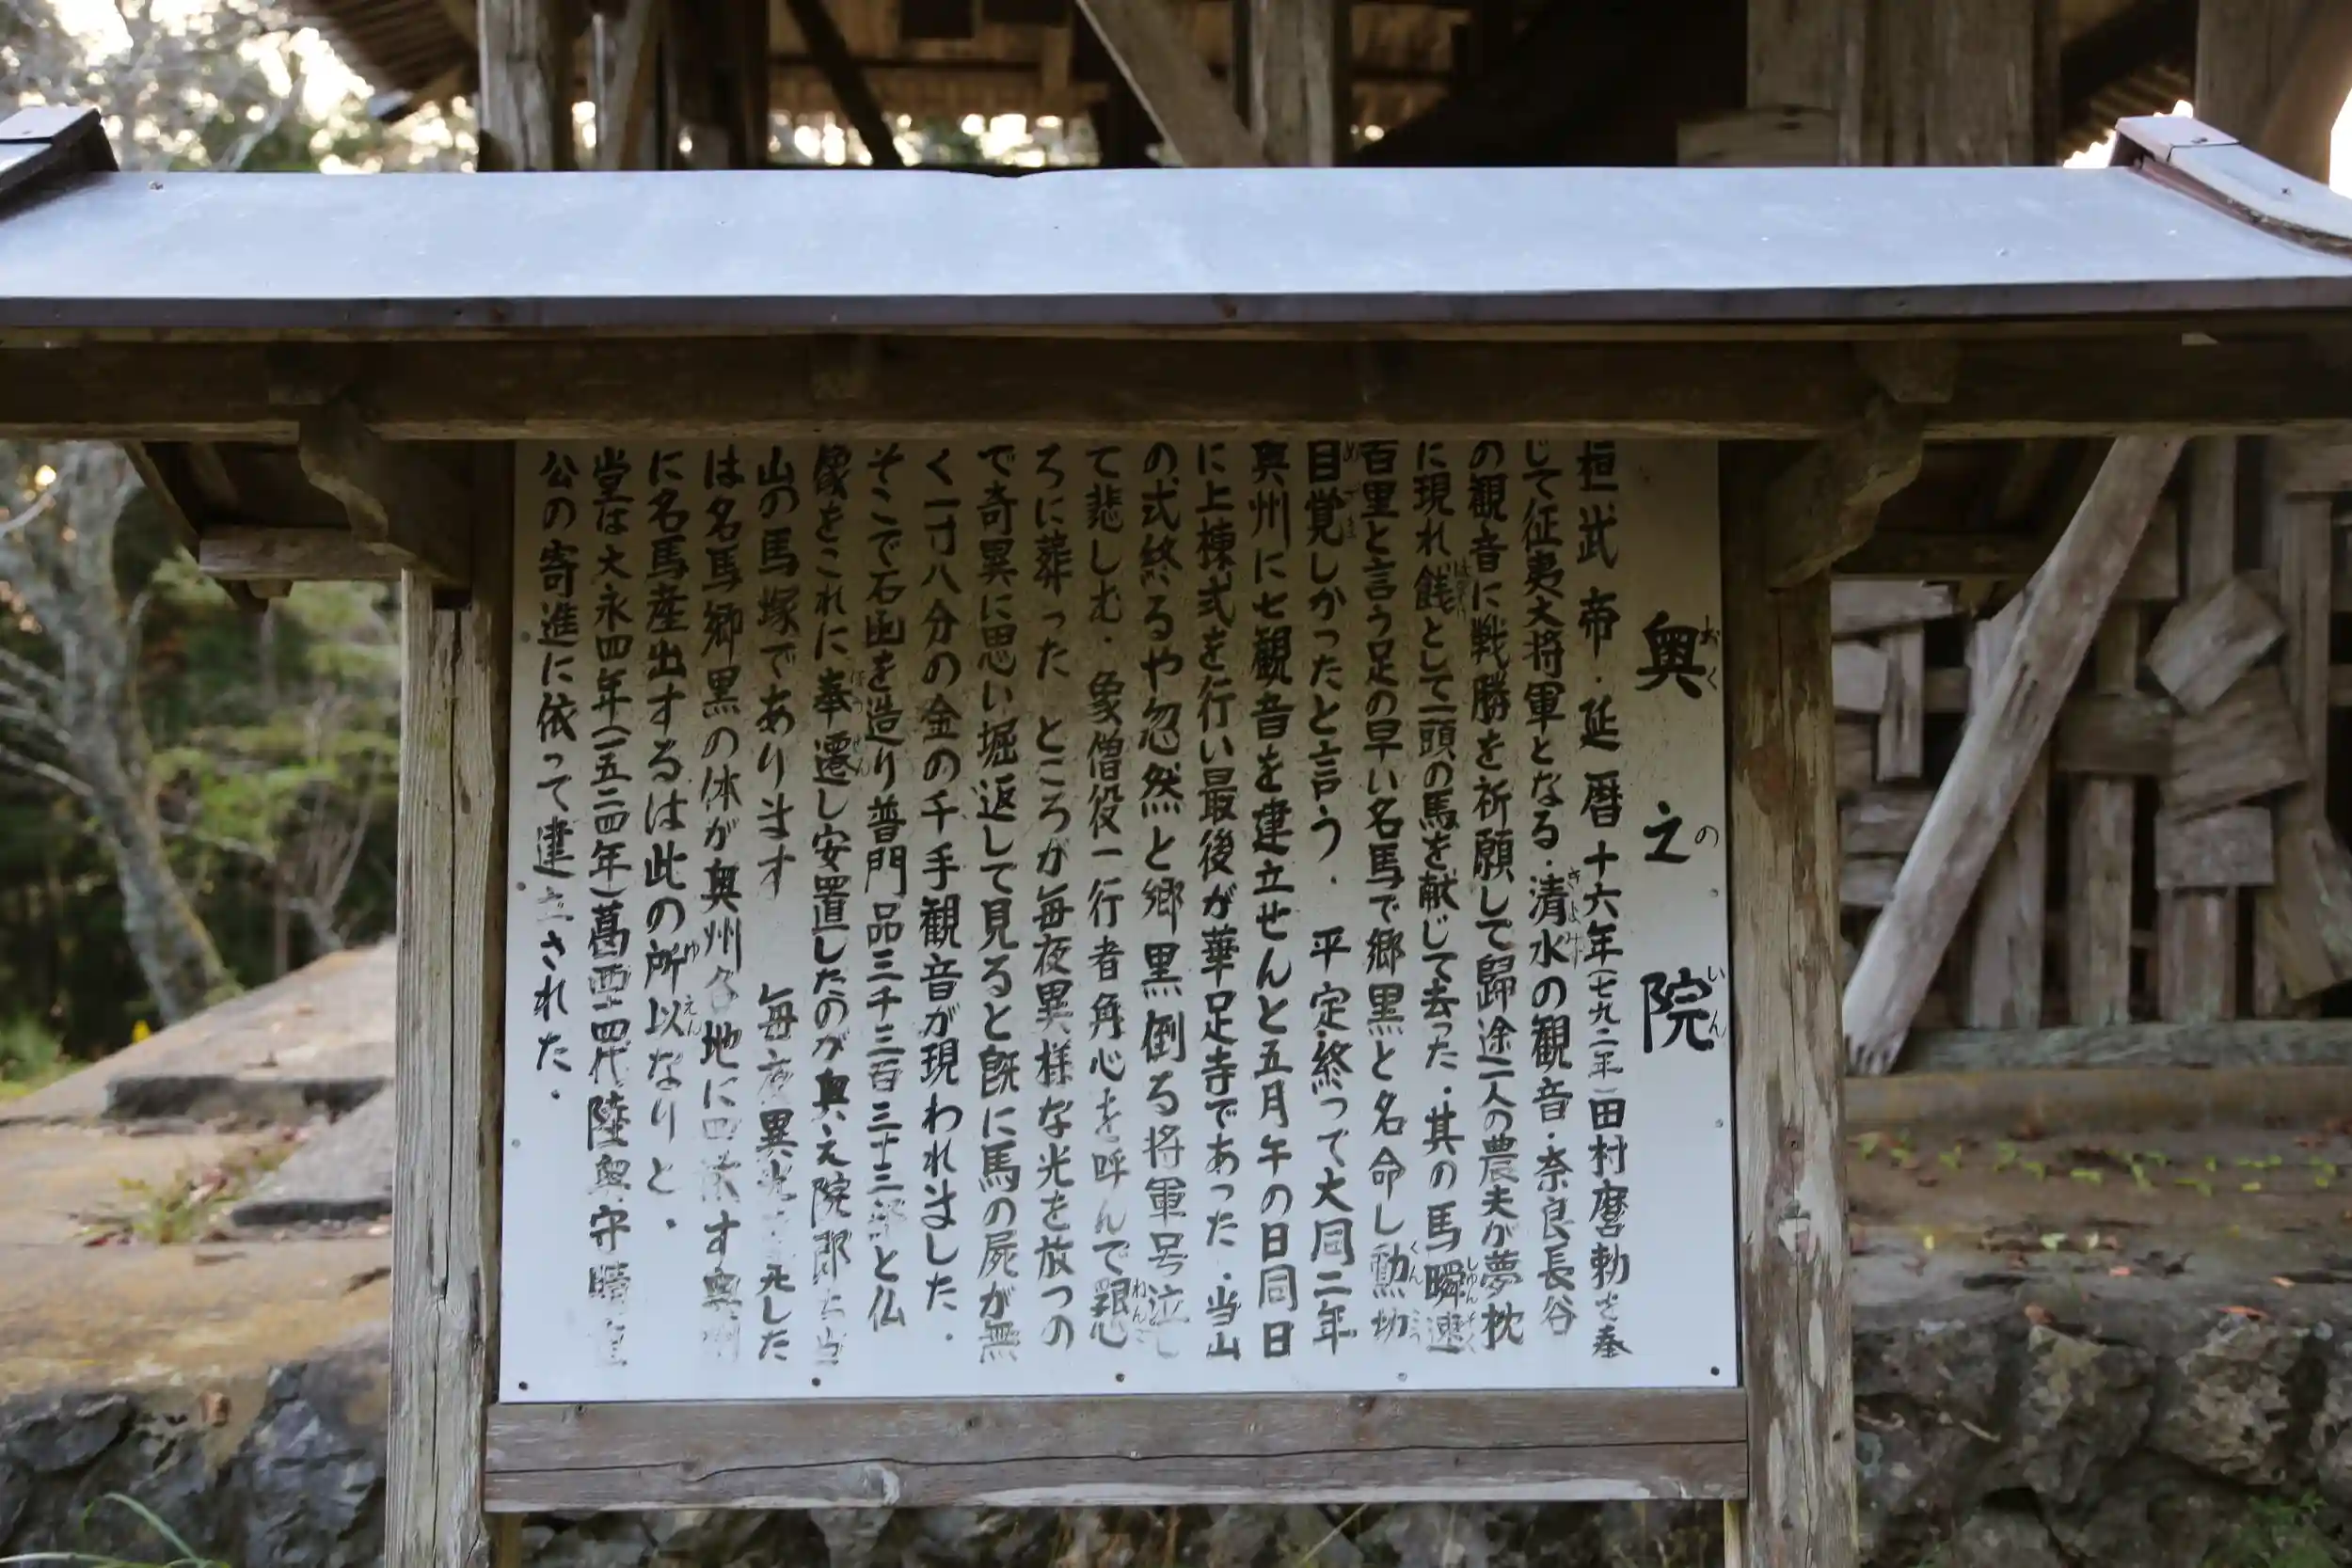 奥之院
桓武帝・延暦十六年(七九二年)田村麿勅を奉
じて征夷大将軍となる・清水の観音・奈良長谷
の観音に戦勝を祈願して歸途二人の農夫が夢枕
に現れ銭として一頭の馬を献じて去った・其の馬瞬速
百里と言う足の早い名馬で郷黒と名命し勳功
目覚しかったと言う・平定終って大同二年
奥州に七観音を建立せんと五月午の日同日
に上棟式を行い最後が華足寺であった・当山
の式終るや忽然と郷黒倒る将軍号泣し
て悲しむ・象僧役一行者角心を呼んで懇
ろに葬ったところが毎夜異様な光を放つの
で奇異に思い堀返して見ると既に馬の屍が無
く一寸八分の金の千手観音が現われました・
そこで石函を造り普門品三千三百三十三部と仏
像をこれに奉遷し安置したのが奥之院即ち当
山の馬塚であります 毎夜異光 死した
は名馬郷黒の体が奥州各地に す奥州
に名馬産出するは此の所以なりと・
堂は大永四年(一五二四年)葛西十四代陸奥守晴重
公の寄進に依って建立された・